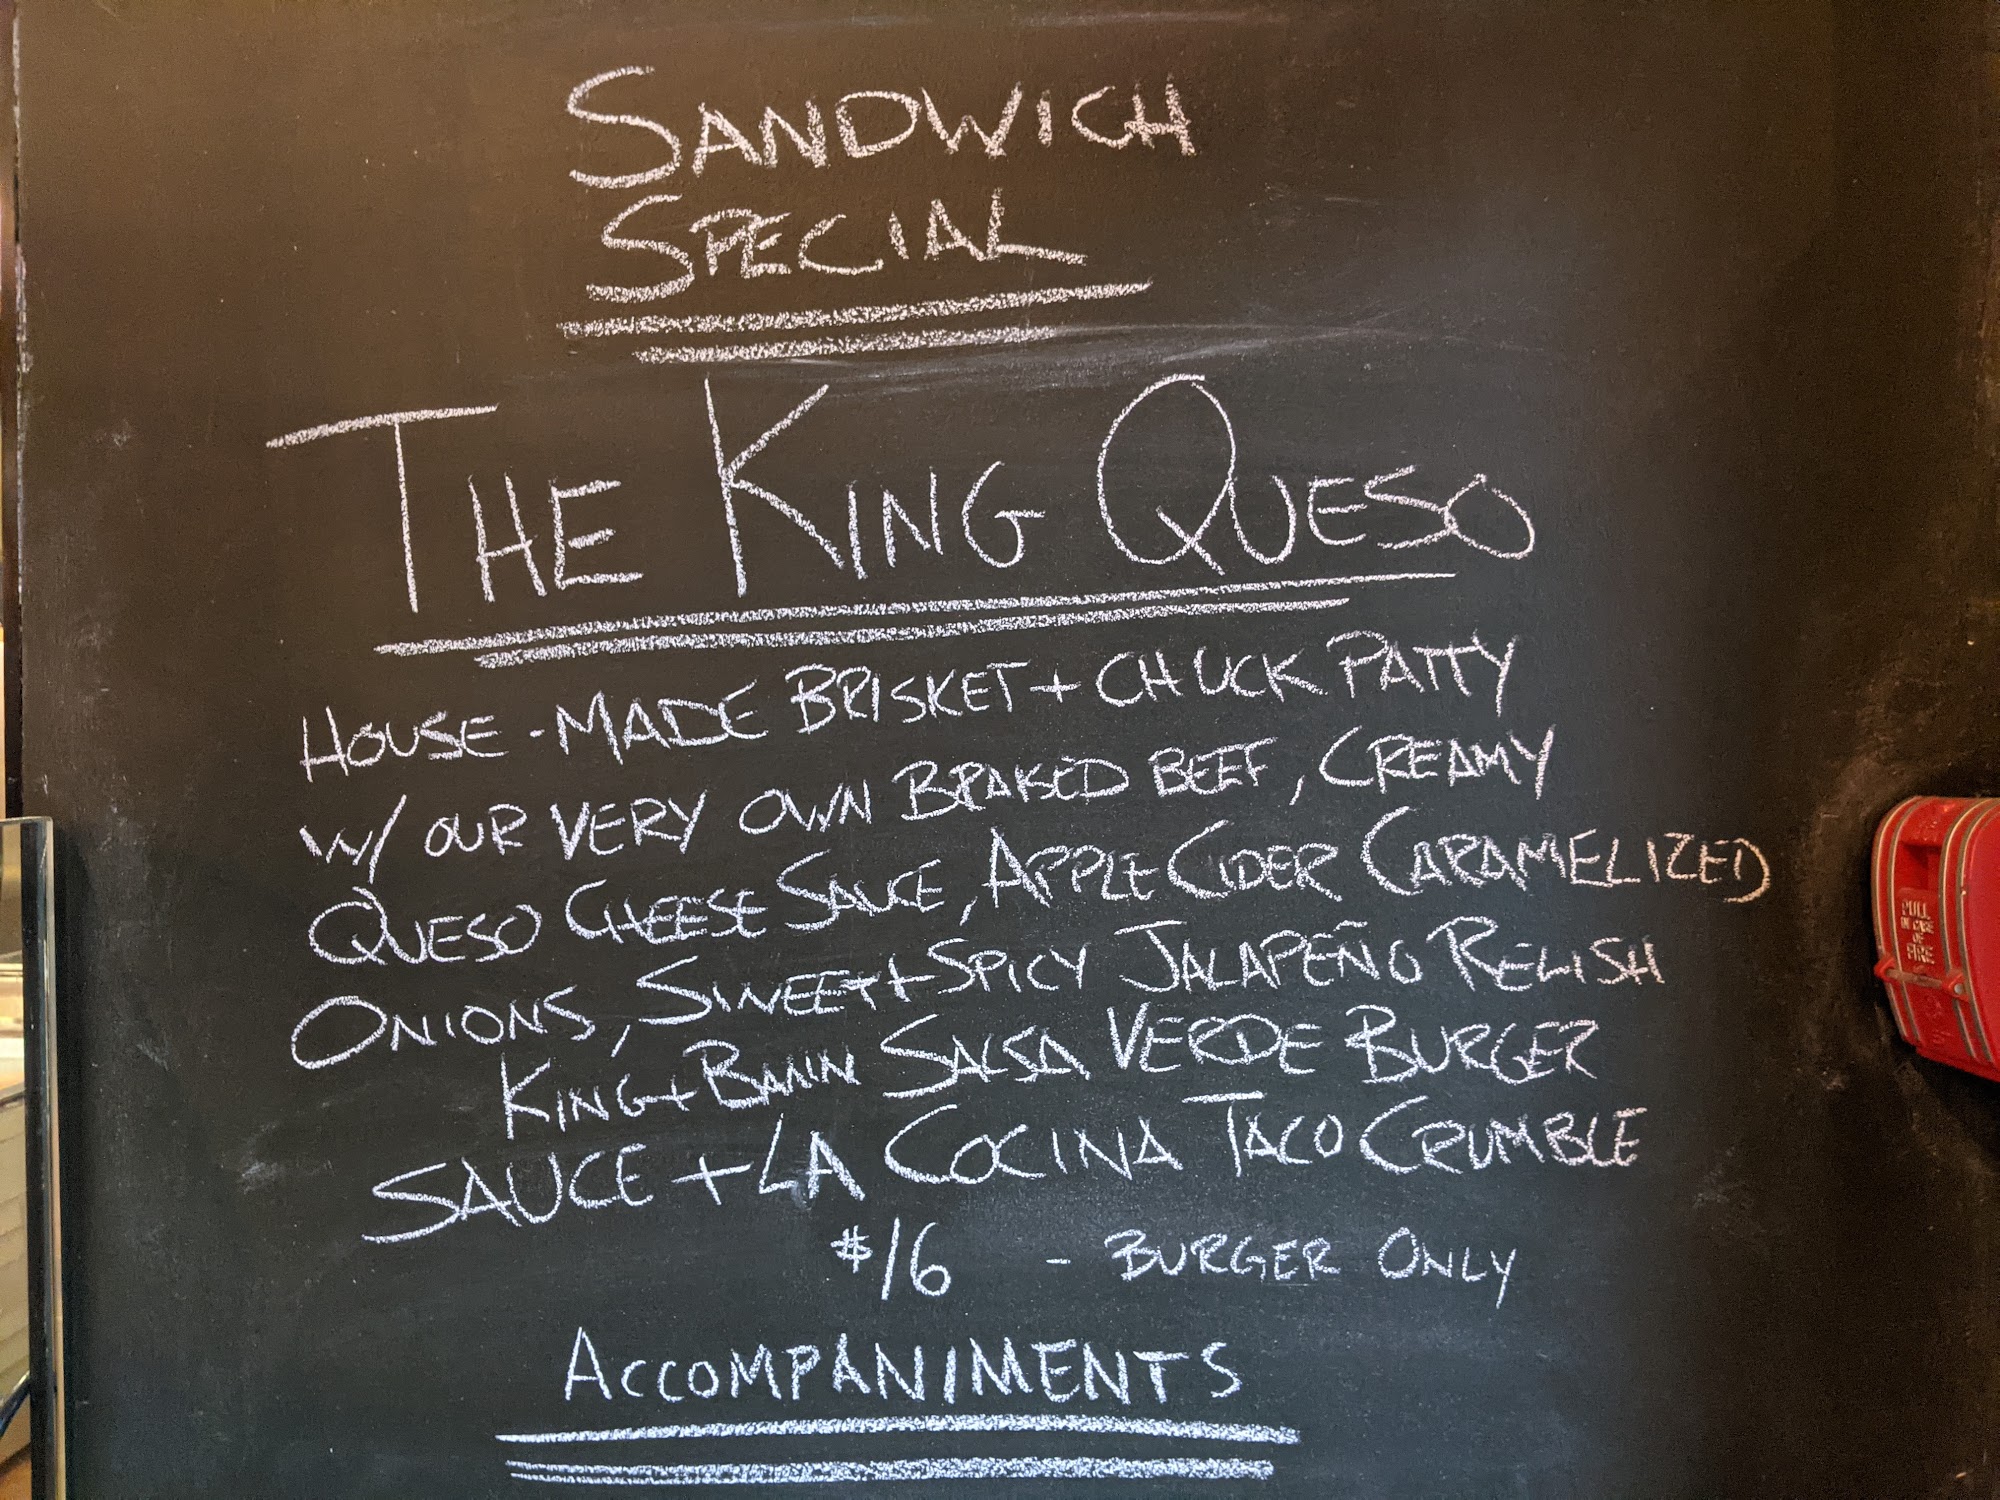 SANDWICH
SPECIAL
THE KING QUESO
HOUSE-MADE BRISKET + CHUCK PATTY
W/ OUR VERY OWN BRAISED BEEF, CREAMY
QUESO CHEESE SAUCE, APPLE CIDER CARAMELIZED
ONIONS, SWEET + SPICY JALAPEÑO RELISH
KING + BANN SALSA VERDE BURGER
SAUCE + LA COCINA TACO CRUMBLE
$16 - BURGER ONLY
ACCOMPANIMENTS
PULL
IN CASE
OF
FIRE